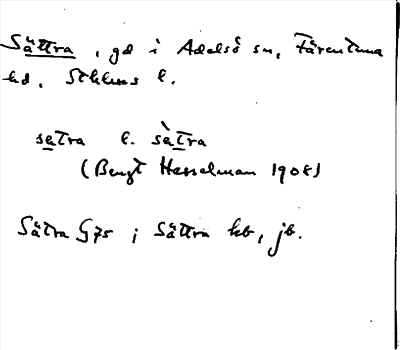 Sättra, gd i Adelsö sn, Färentuna
hd, Sthlms l.
setra l. sètra
(Bengt Hesselman 1908)
Sätra G75; Sättra kb, jb.